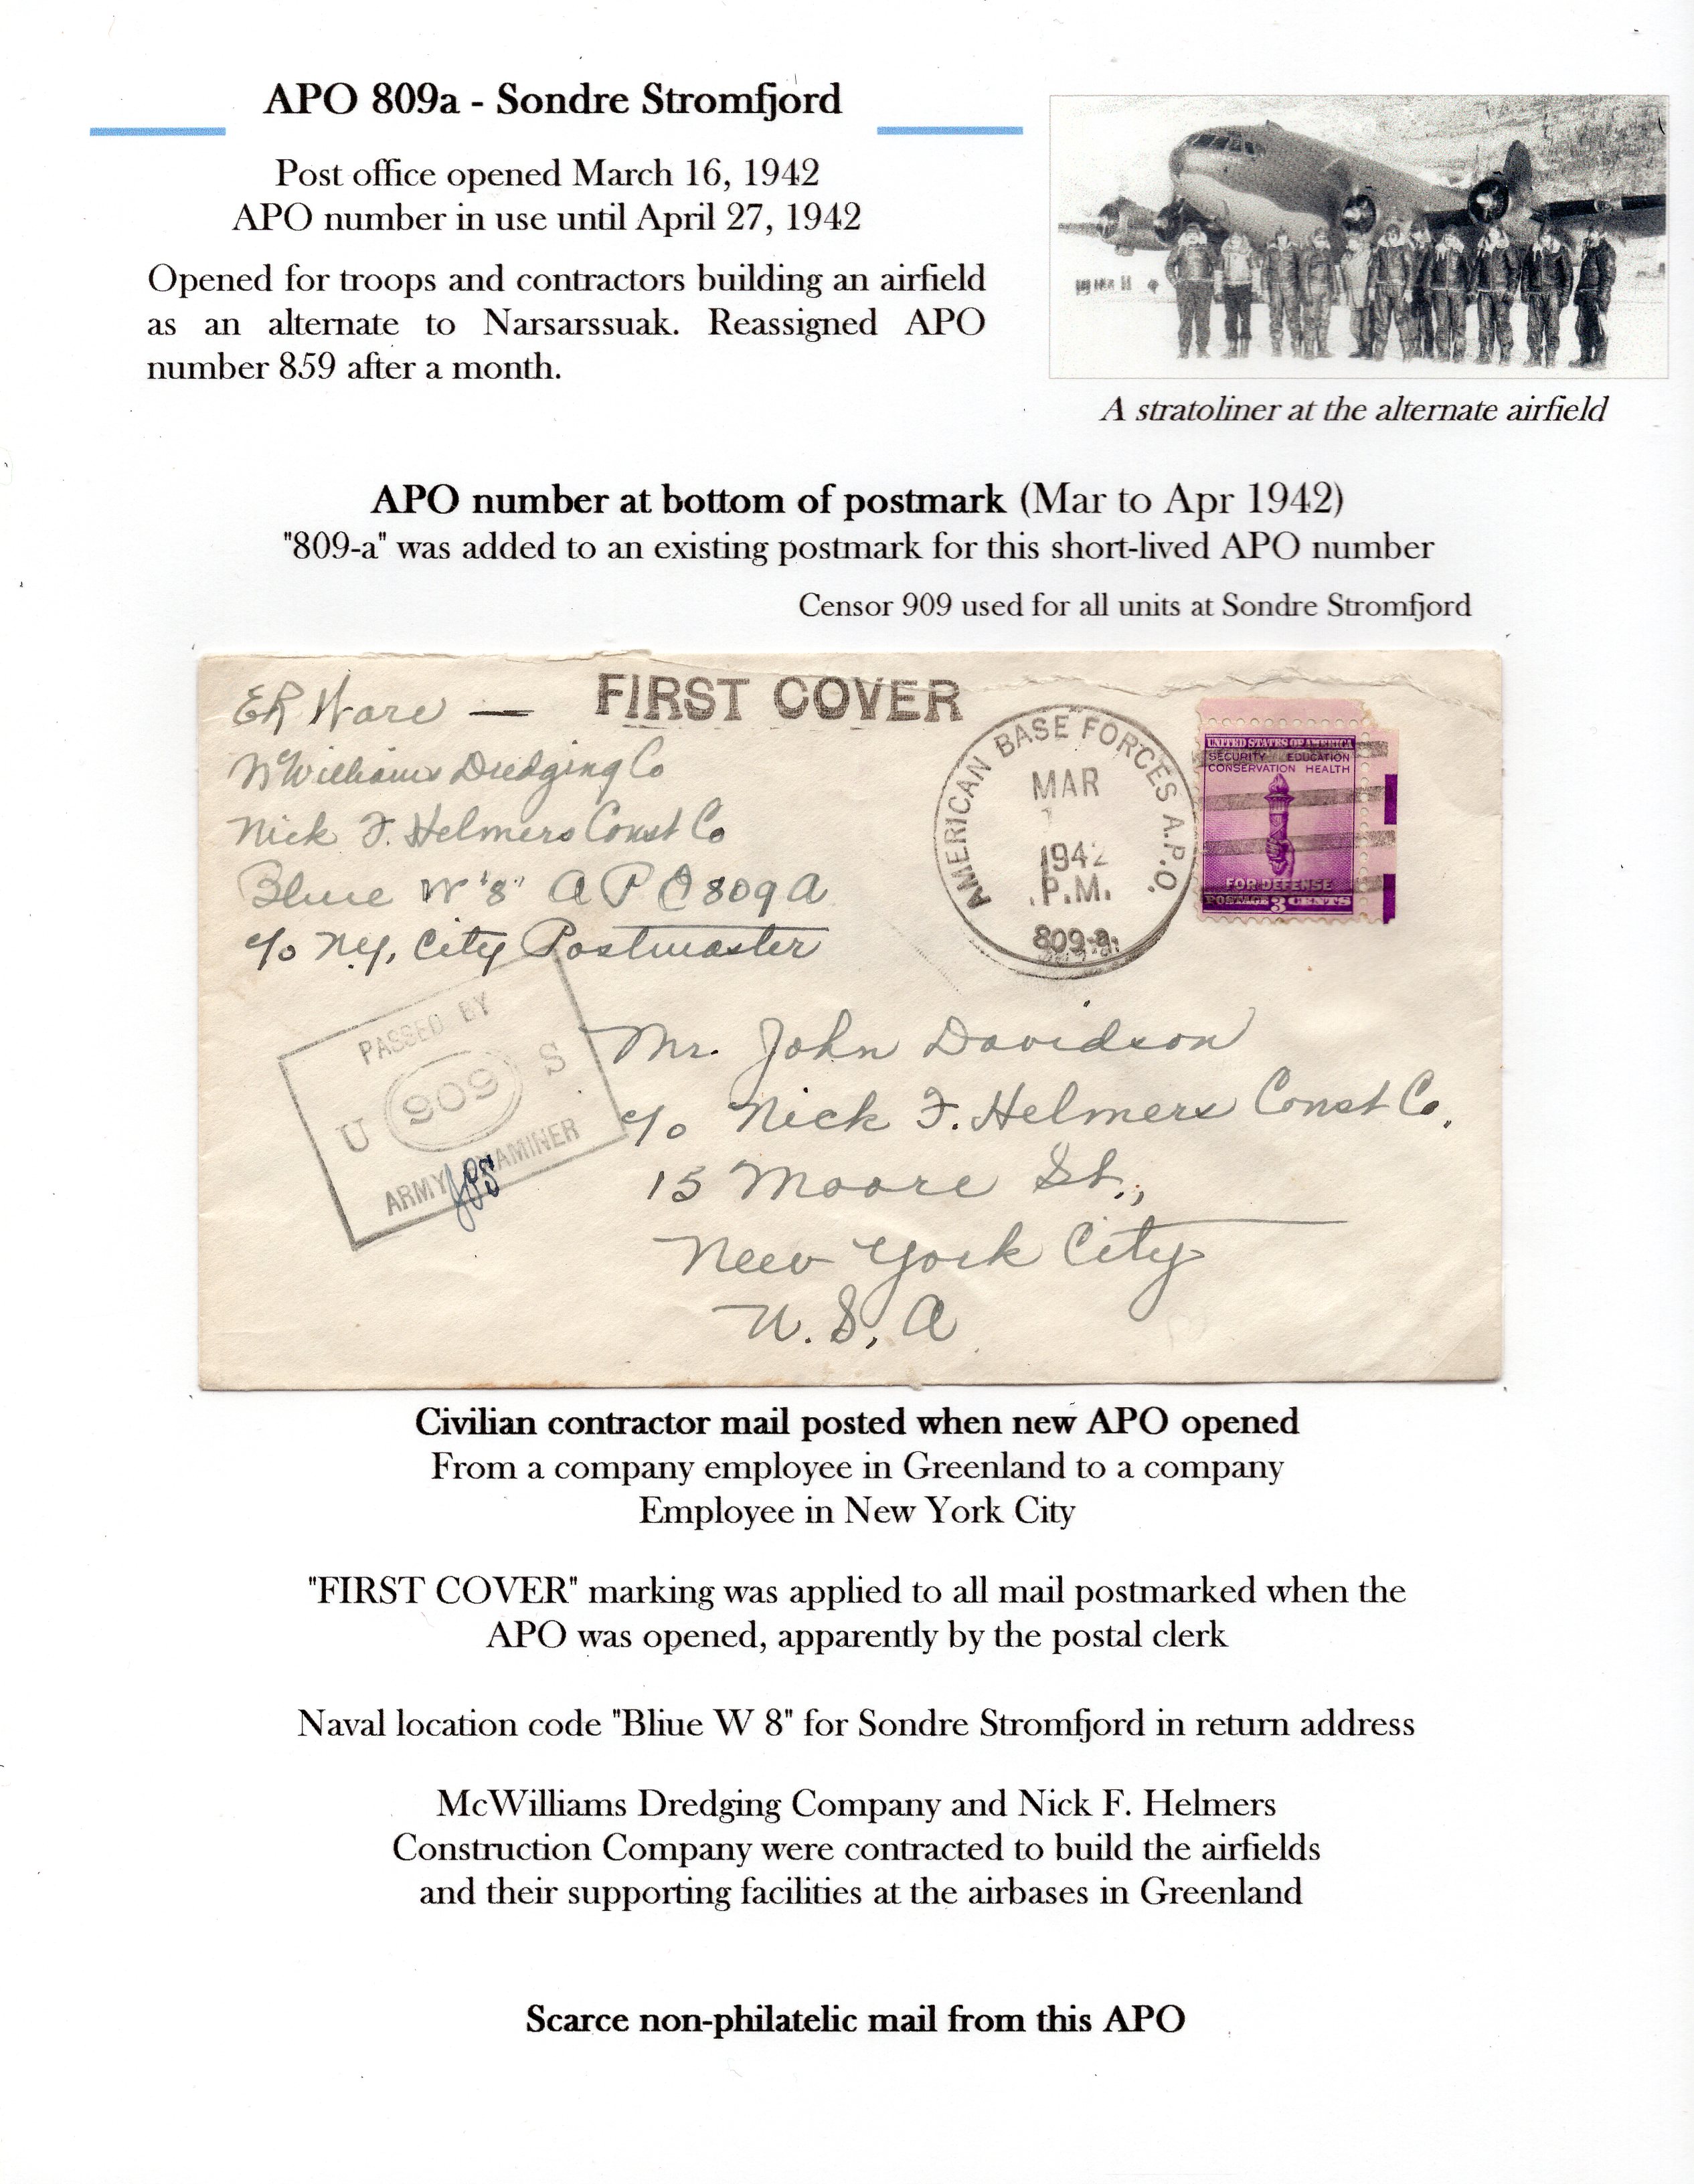 APO 809a - Sondre Stromfjord
Post office opened March 16, 1942
APO number in use until April 27, 1942
Opened for troops and contractors building an airfield
as an alternate to Narsarssuak. Reassigned APO
number 859 after a month.
A stratoliner at the alternate airfield
APO number at bottom of postmark (Mar to Apr 1942)
"809-a" was added to an existing postmark for this short-lived APO number
Censor 909 used for all units at Sondre Stromfjord
FIRST COVER
ER Ware —
McWilliams Dredging Co
Nick F. Helmers Const Co
Blue W "8" APO 809A
c/o N.Y. City Postmaster
AMERICAN BASE FORCES A.P.O.
MAR
1942
P.M.
809-a.
UNITED STATES OF AMERICA
SECURITY EDUCATION
CONSERVATION HEALTH
FOR DEFENSE
POSTAGE 3 CENTS
PASSED BY
U 909 S
ARMY EXAMINER
Mr. John Davidson
c/o Nick F. Helmers Const Co.
15 Moore St.,
New York City
U.S.A
Civilian contractor mail posted when new APO opened
From a company employee in Greenland to a company
Employee in New York City
"FIRST COVER" marking was applied to all mail postmarked when the
APO was opened, apparently by the postal clerk
Naval location code "Bliue W 8" for Sondre Stromfjord in return address
McWilliams Dredging Company and Nick F. Helmers
Construction Company were contracted to build the airfields
and their supporting facilities at the airbases in Greenland
Scarce non-philatelic mail from this APO